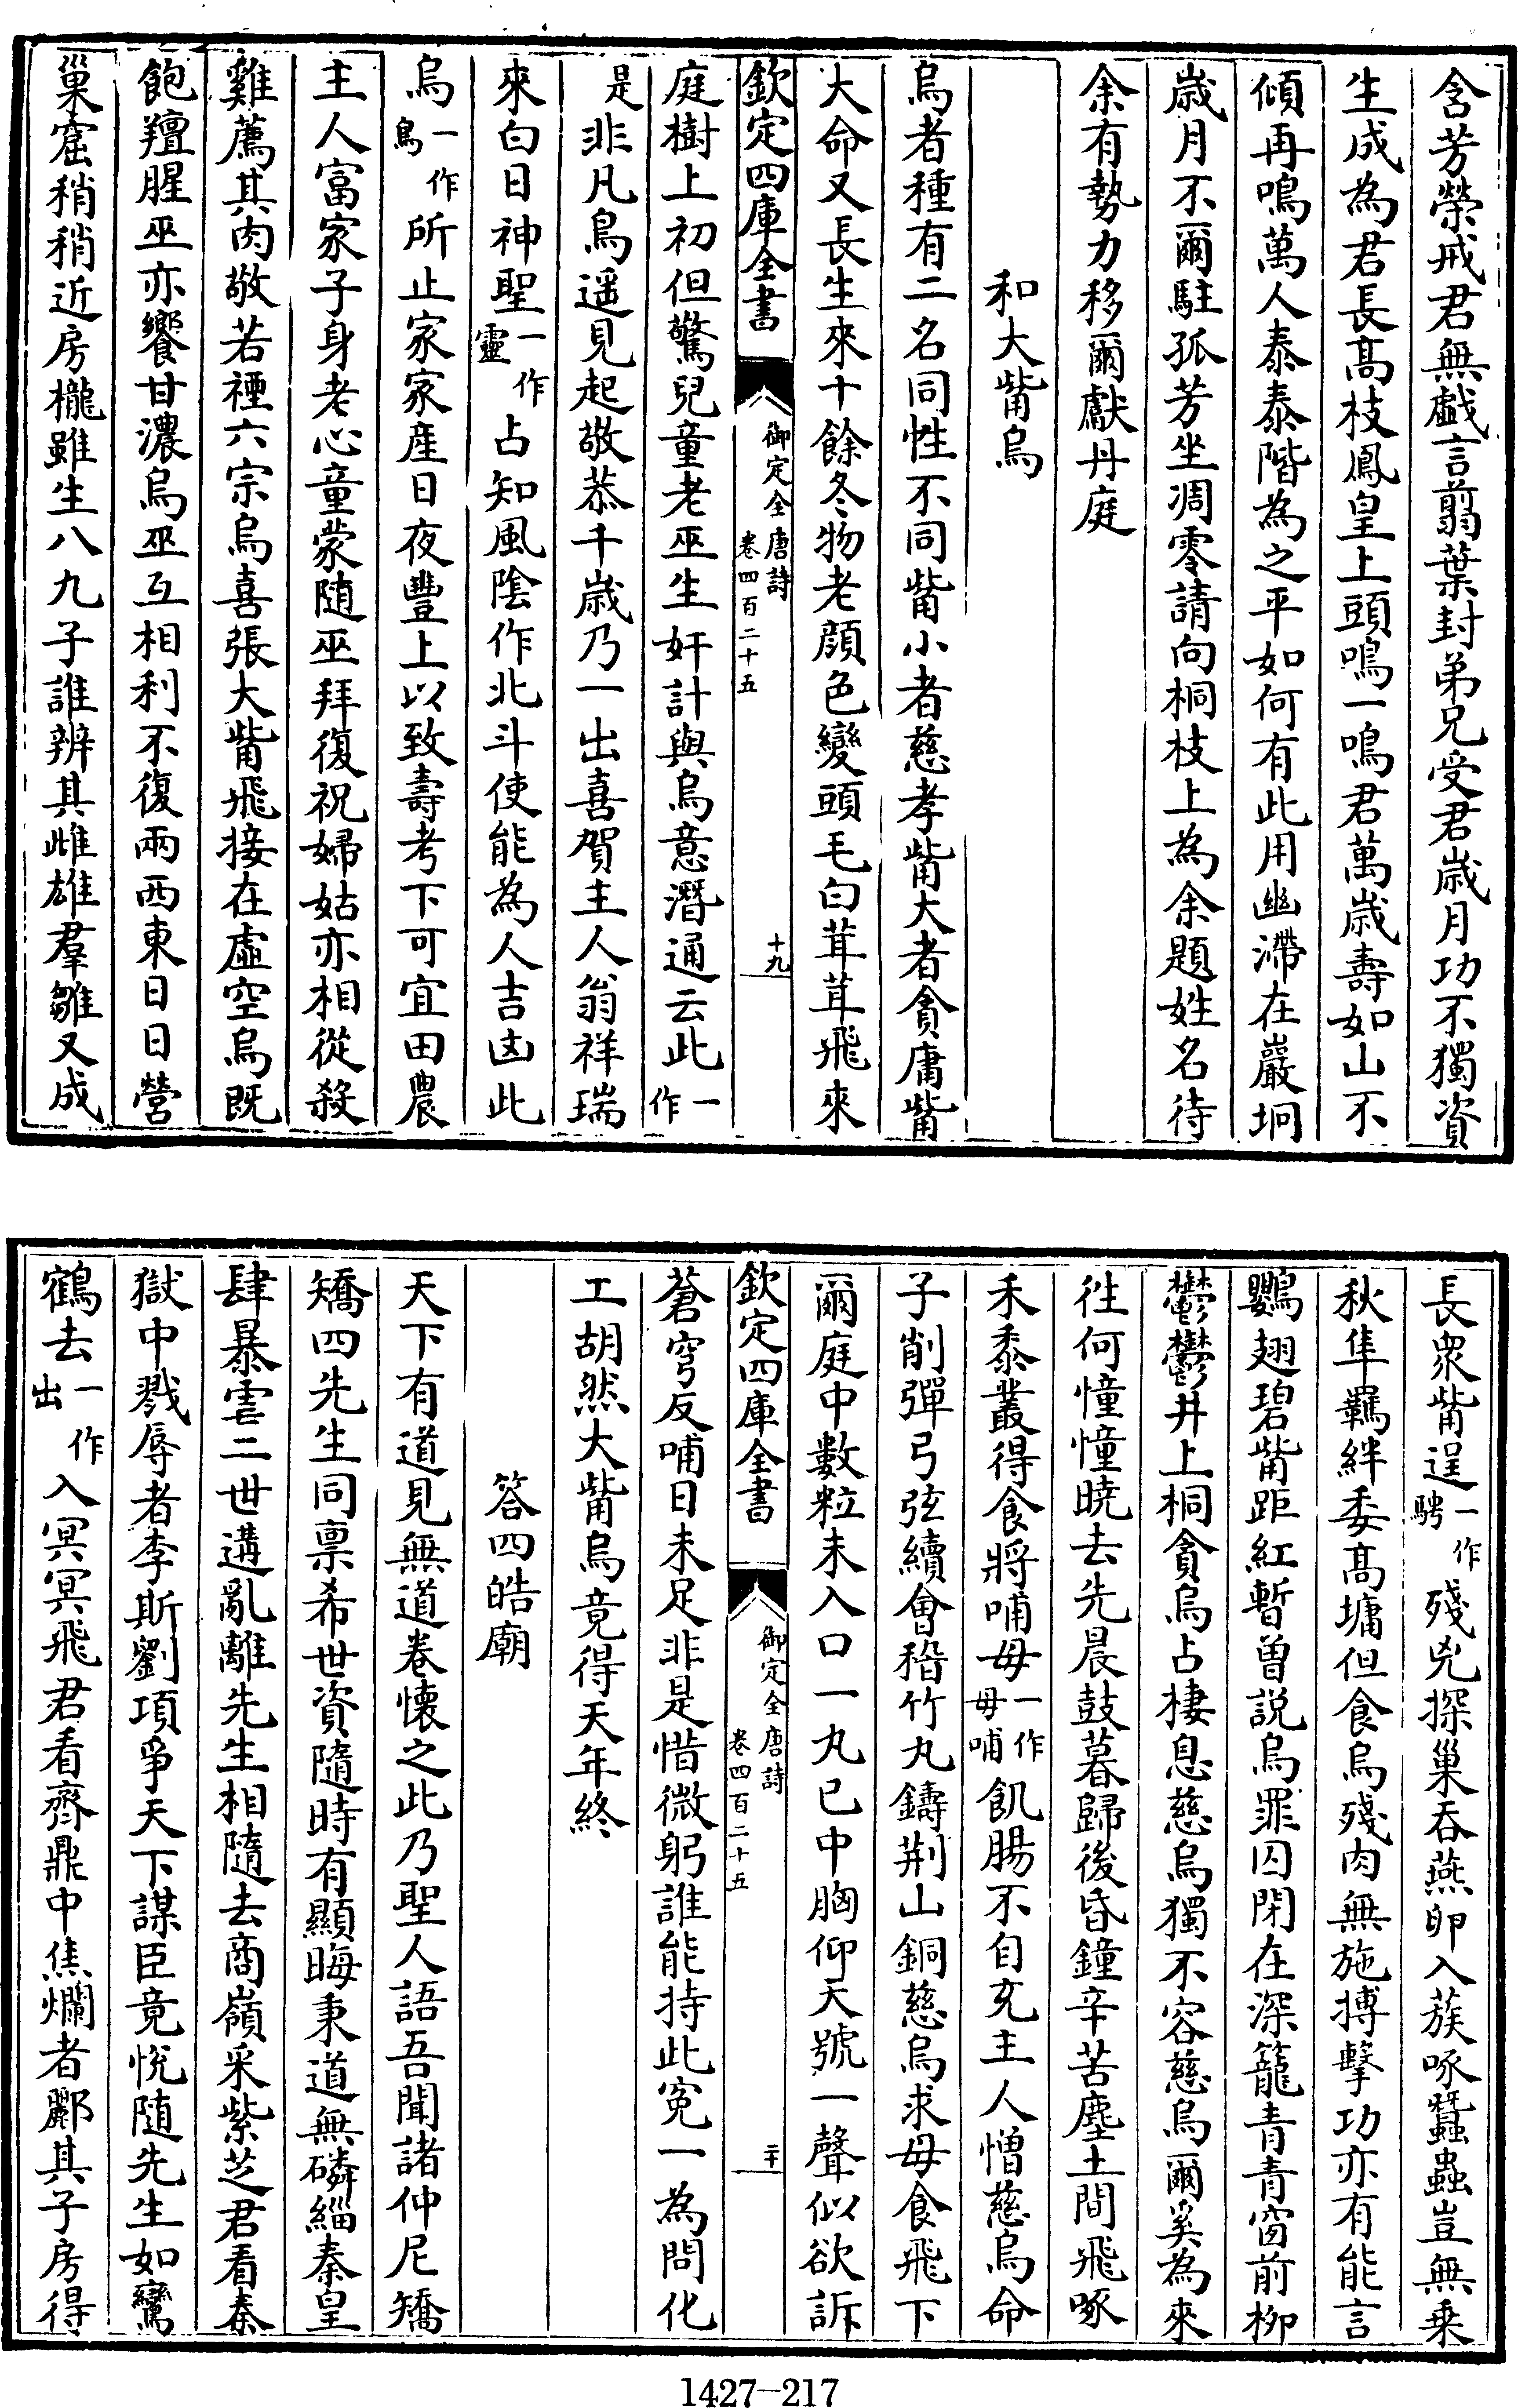 含芳榮戒君無戲言翦葉封弟兄受君歲月功不獨資
生成為君長高枝鳳皇上頭鳴一鳴君萬歲壽如山不
傾再鳴萬人泰泰階為之平如何有此用幽滯在巖坰
歲月不爾駐孤芳坐凋零請向桐枝上為余題姓名待
余有勢力移爾獻丹庭
和大觜烏
烏者種有二名同性不同觜小者慈孝觜大者貪庸觜
大命又長生來十餘冬物老顏色變頭毛白茸茸飛來
欽定四庫全書 御定全唐詩 卷四百二十五 十九
庭樹上初但驚兒童老巫生奸計與烏意潛通云此一作
是非凡鳥遥見起敬恭千歲乃一出喜賀主人翁祥瑞
來白日神聖一作靈占知風陰作北斗使能為人吉凶此
烏一作鳥所止家家産日夜豐上以致壽考下可宜田農
主人富家子身老心童蒙随巫拜復祝婦姑亦相從殺
雞薦其肉敬若禋六宗烏喜張大觜飛接在虛空烏既
飽羶腥巫亦饗甘濃烏巫互相利不復兩西東日日營
巢窟稍稍近房櫳雖生八九子誰辨其雌雄羣雛又成
長衆觜逞一作騁殘兇探巢吞燕卵入蔟啄蠶蟲豈無乗
秋隼羈絆委高墉但食烏殘肉無施搏擊功亦有能言
鸚翅碧觜距紅暫曽説烏罪囚閉在深籠青青窗前柳
鬱鬱井上桐貪烏占棲息慈烏獨不容慈烏爾奚為來
徃何憧憧曉去先晨鼓暮歸後昏鐘辛苦塵土間飛啄
禾黍叢得食將哺母一作母哺飢腸不自充主人憎慈烏命
子削彈弓弦續會稽竹丸鑄荆山銅慈烏求母食飛下
爾庭中數粒未入口一丸已中胸仰天號一聲似欲訴
欽定四庫全書 御定全唐詩 卷四百二十五 二十
蒼穹反哺日未足非是惜微躬誰能持此寃一為問化
工胡然大觜烏竟得天年終
答四皓廟
天下有道見無道卷懷之此乃聖人語吾聞諸仲尼矯
矯四先生同禀希世資隨時有顯晦秉道無磷緇秦皇
肆暴虐二世遘亂離先生相隨去商嶺采紫芝君看秦
獄中戮辱者李斯劉項爭天下謀臣竟悅随先生如鸞
鶴去一作出入冥冥飛君看齊鼎中焦爛者酈其子房得
1427-217